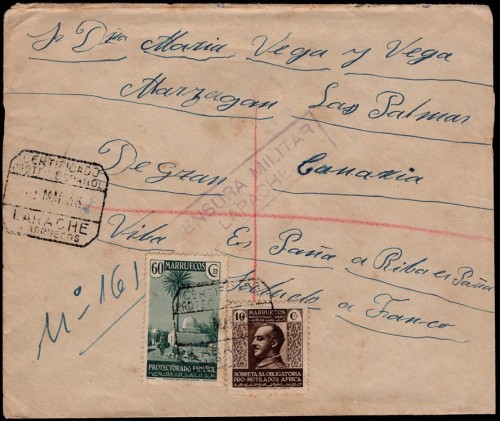 Sr Dña Maria Vega y Vega
Marzagan Las Palmas
De gran Canaria
Viba Es Paña a Riba es Paña
Saludo a Franco
Nº 161
CERTIFICADO
PROTEC. ESPAÑOL
MAR.
LARACHE
MARRUECOS
CENSURA MILITAR
LARACHE
60 Cs
MARRUECOS
PROTECTORADO ESPAÑOL
10 Cs
MARRUECOS
PROTECTORADO ESPAÑOL
SOBRETASA OBLIGATORIA
PRO-MUTILADOS AFRICA